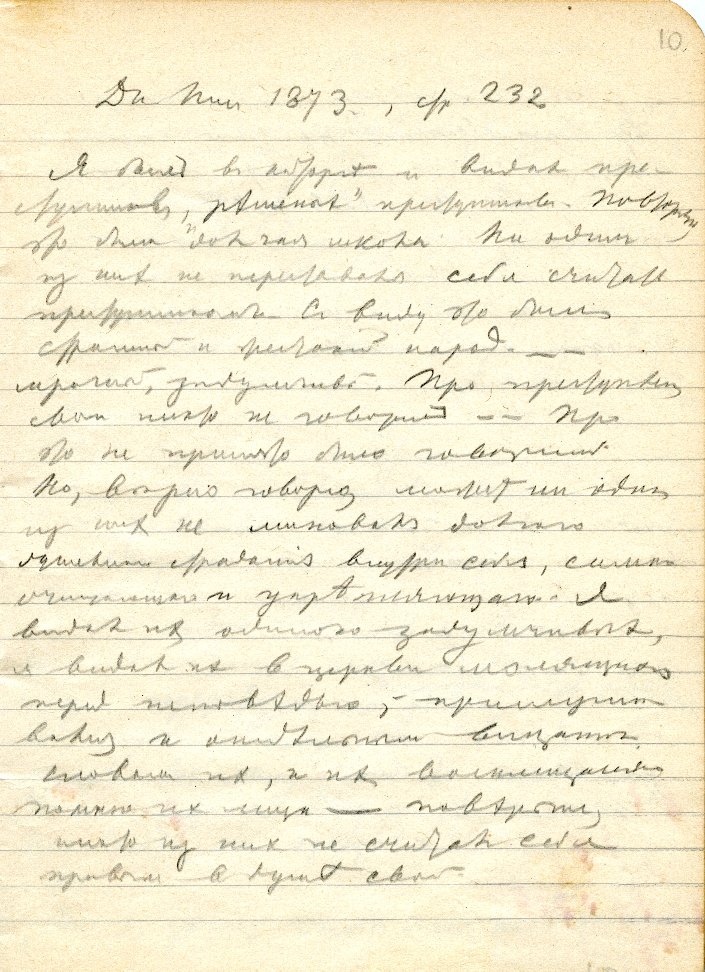 10
Дн Пис 1873. , стр 232
Я былъ в каторгѣ и видал пре-
ступников, „рѣшеных" преступников. Повторяю,
это была долгая школа. Ни один
из них не переставал себя считать
преступником. С виду это был
страшный и жестокий народ. — —
мрачный, задумчивый. Про преступленія
свои никто не говорил — — Про
это не принято было говорить
Но, вѣрно говорю, может ни один
из них не миновал долгаго
душевнаго страданія внутри себя, самаго
очищающаго и укрѣпляющаго. Я
видал их одиноко задумчивых,
я видал их в церкви молящихся
перед исповѣдью, прислушивался
к отдѣльным внезапным
словам их, к их восклицаніям
помню их лица — повѣрьте,
никто из них не считал себя
правым в душѣ своей.